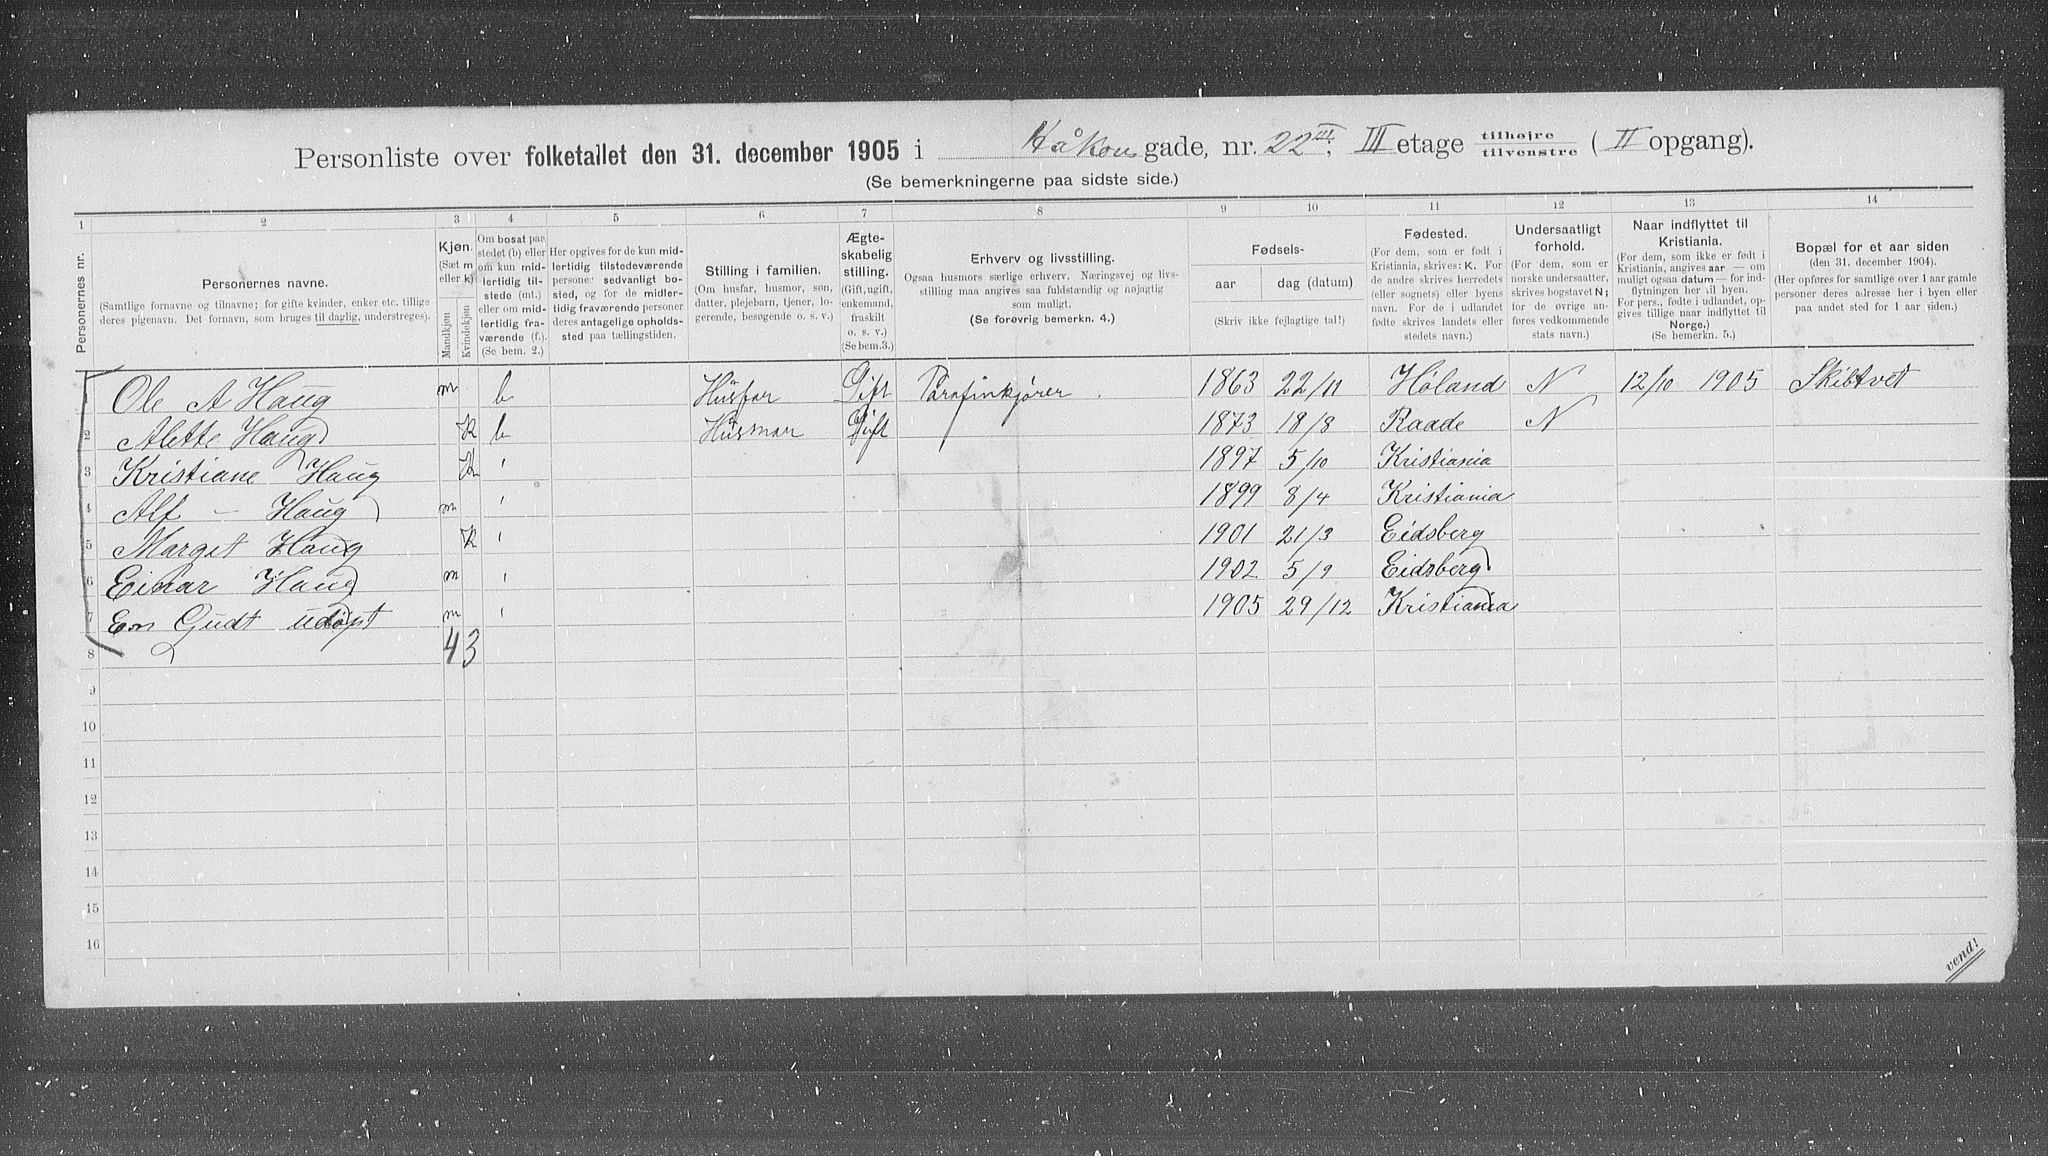 Personliste over folketallet den 31. december 1905 i Håkons gade, nr. 22 III, III etage tilhøjre / tilvenstre ( II opgang).
(Se bemerkningerne paa sidste side.)
1 2 3 4 5 6 7 8 9 10 11 12 13 14
Personernes nr.
Personernes navne.
(Samtlige fornavne og tilnavne; for gifte kvinder, enker etc. tillige
deres pigenavn. Det fornavn, som bruges til daglig, understreges).
Kjøn.
(Sæt m
eller k)
Mandkjøn
Kvindekjøn
Om bosat paa
stedet (b) eller
om kun mid-
lertidig til-
stede (mt.)
eller om mid-
lertidig fra-
værende (f.).
(Se bem. 2.)
Her opgives for de kun mid-
lertidig tilstedeværende
personer sedvanligt bo-
sted, og for de midler-
tidig fraværende personer
deres antagelige opholds-
sted paa tællingstiden.
Stilling i familien.
(Om husfar, husmor, søn,
datter, plejebarn, tjener, lo-
gerende, besøgende o. s. v.)
Ægte-
skabelig
stilling.
(Gift, ugift,
enkemand,
fraskilt
o. s. v.)
(Se bem.3.)
Erhverv og livsstilling.
Ogsaa husmors særlige erhverv. Næringsvej og livs-
stilling maa angives saa fuldstændig og nøjagtig
som muligt.
(Se forøvrig bemerkn. 4.)
Fødsels-
aar dag (datum)
(Skriv ikke fejlagtige tal!)
Fødested.
(For dem, som er født i
Kristiania, skrives: K. For
de andre skrives herredets
(eller sognets) eller byens
navn. For de i udlandet
fødte skrives landets eller
stedets navn.)
Undersaatligt
forhold.
(For dem, som er
norske undersaatter,
skrives bogstavet N;
for de øvrige an-
føres vedkommende
stats navn.)
Naar indflyttet til
Kristiania.
(For dem, som ikke er født i
Kristiania, angives aar — om
muligt ogsaa datum — for ind-
flytningen her til byen.
For pers., fødte i udlandet, op-
gives tillige naar indflyttet til
Norge.)
(Se bemerkn. 5.)
Bopæl for et aar siden
(den 31. december 1904).
(Her opføres for samtlige over 1 aar gamle
personer deres adresse her i byen eller
paa andet sted for 1 aar siden.)
1 Ole A Haug m b Husfar Gift Parafinkjører. 1863 22/11 Høland N 12/10 1905 Skibtvet
2 Alette Haug K b Husmor Gift 1873 18/8 Raade N
3 Kristiane Haug K " 1897 5/10 Kristiania
4 Alf — Haug m " 1899 8/4 Kristiania
5 Marget Haug K " 1901 21/3 Eidsberg
6 Einar Haug m " 1902 5/9 Eidsberg
7 En Gudt udøpt m " 1905 29/12 Kristiania
8 4 3
9
10
11
12
13
14
15
16
vend!